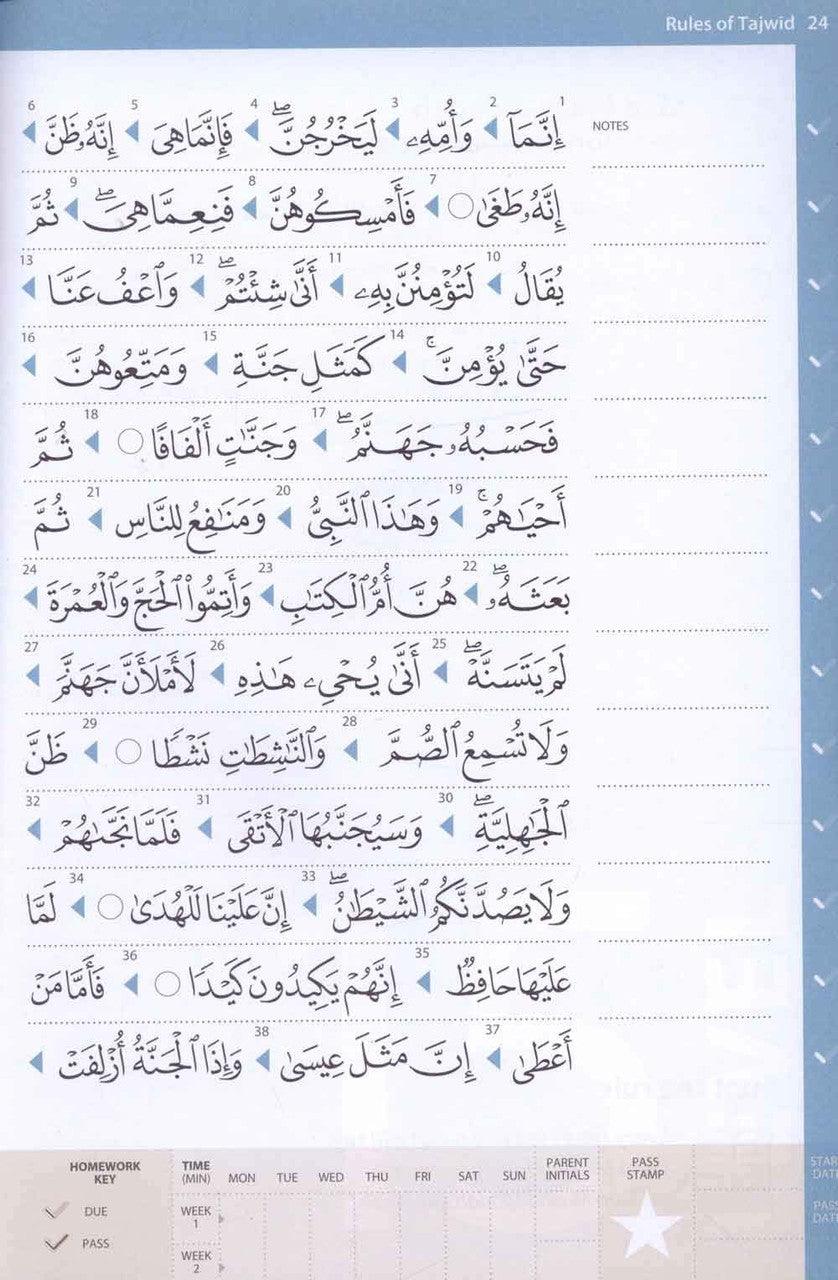 Rules of Tajwid 24
NOTES
1 إِنَّمَآ 2 وَأُمِّهِۦ 3 لَيَخْرُجُنَّۖ 4 فَإِنَّمَا هِىَ 5 إِنَّهُۥ ظَنَّ 6
إِنَّهُۥ طَغَىٰ ○ 7 فَأَمْسِكُوهُنَّ 8 فَنِعِمَّا هِىَۖ 9 ثُمَّ
يُقَالُ 10 لَتُؤْمِنُنَّ بِهِۦ 11 أَنَّىٰ شِئْتُمْۖ 12 وَٱعْفُ عَنَّا 13
حَتَّىٰ يُؤْمِنَّۚ 14 كَمَثَلِ جَنَّةِۭ 15 وَمَتِّعُوهُنَّ 16
فَحَسْبُهُۥ جَهَنَّمُۖ 17 وَجَنَّٰتٍ أَلْفَافًا ○ 18 ثُمَّ
أَحْيَٰهُمْۚ 19 وَهَٰذَا ٱلنَّبِىُّ 20 وَمَنَٰفِعُ لِلنَّاسِ 21 ثُمَّ
بَعَثَهُۥۖ 22 هُنَّ أُمُّ ٱلْكِتَٰبِ 23 وَأَتِمُّوا۟ ٱلْحَجَّ وَٱلْعُمْرَةَ 24
لَمْ يَتَسَنَّهْۖ 25 أَنَّىٰ يُحْىِۦ هَٰذِهِ 26 لَأَمْلَأَنَّ جَهَنَّمَ 27
وَلَا تُسْمِعُ ٱلصُّمَّ 28 وَٱلنَّٰشِطَٰتِ نَشْطًا ○ 29 ظَنَّ
ٱلْجَٰهِلِيَّةِۖ 30 وَسَيُجَنَّبُهَا ٱلْأَتْقَى 31 فَلَمَّا نَجَّىٰهُمْ 32
وَلَا يَصُدَّنَّكُمُ ٱلشَّيْطَٰنُۖ 33 إِنَّ عَلَيْنَا لَلْهُدَىٰ ○ 34 لَّمَّا
عَلَيْهَا حَافِظٌ 35 إِنَّهُمْ يَكِيدُونَ كَيْدًا ○ 36 فَأَمَّا مَنْ
أَعْطَىٰ 37 إِنَّ مَثَلَ عِيسَىٰ 38 وَإِذَا ٱلْجَنَّةُ أُزْلِفَتْ
HOMEWORK KEY
DUE
PASS
TIME (MIN) MON TUE WED THU FRI SAT SUN PARENT INITIALS PASS STAMP
WEEK 1
WEEK 2